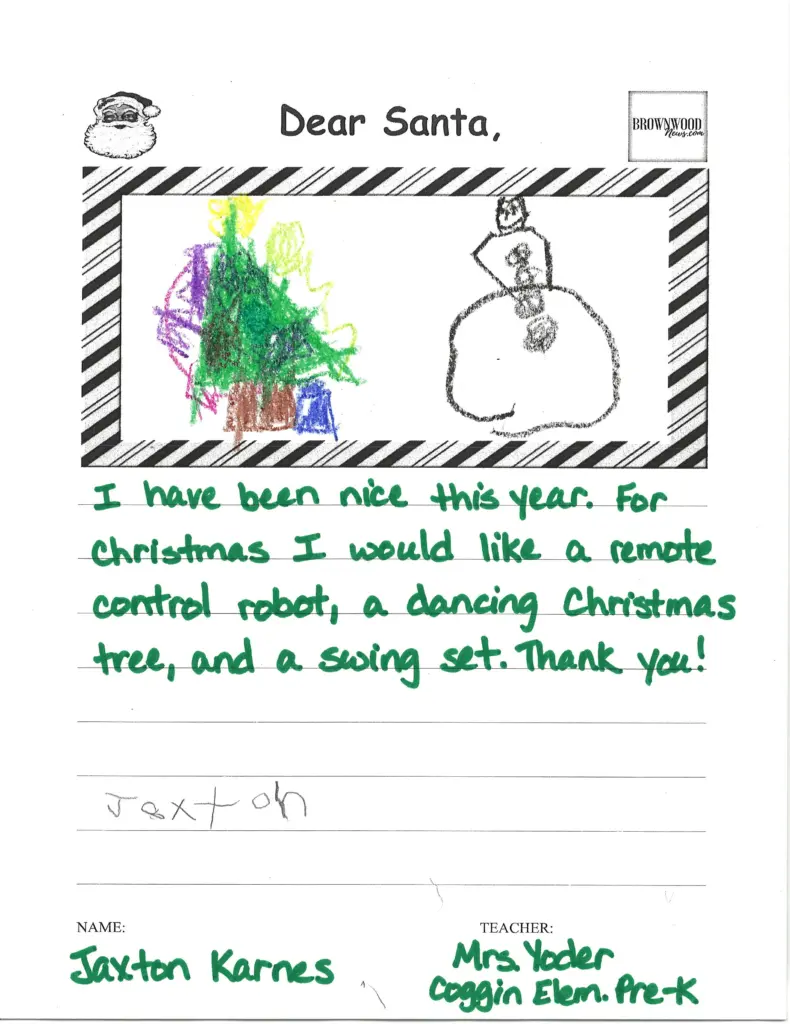 Dear Santa,
BROWNWOOD
News.com
I have been nice this year. For
Christmas I would like a remote
control robot, a dancing Christmas
tree, and a swing set. Thank you!
Jaxton
NAME:
TEACHER:
Jaxton Karnes
Mrs. Yoder
Coggin Elem. Pre-K